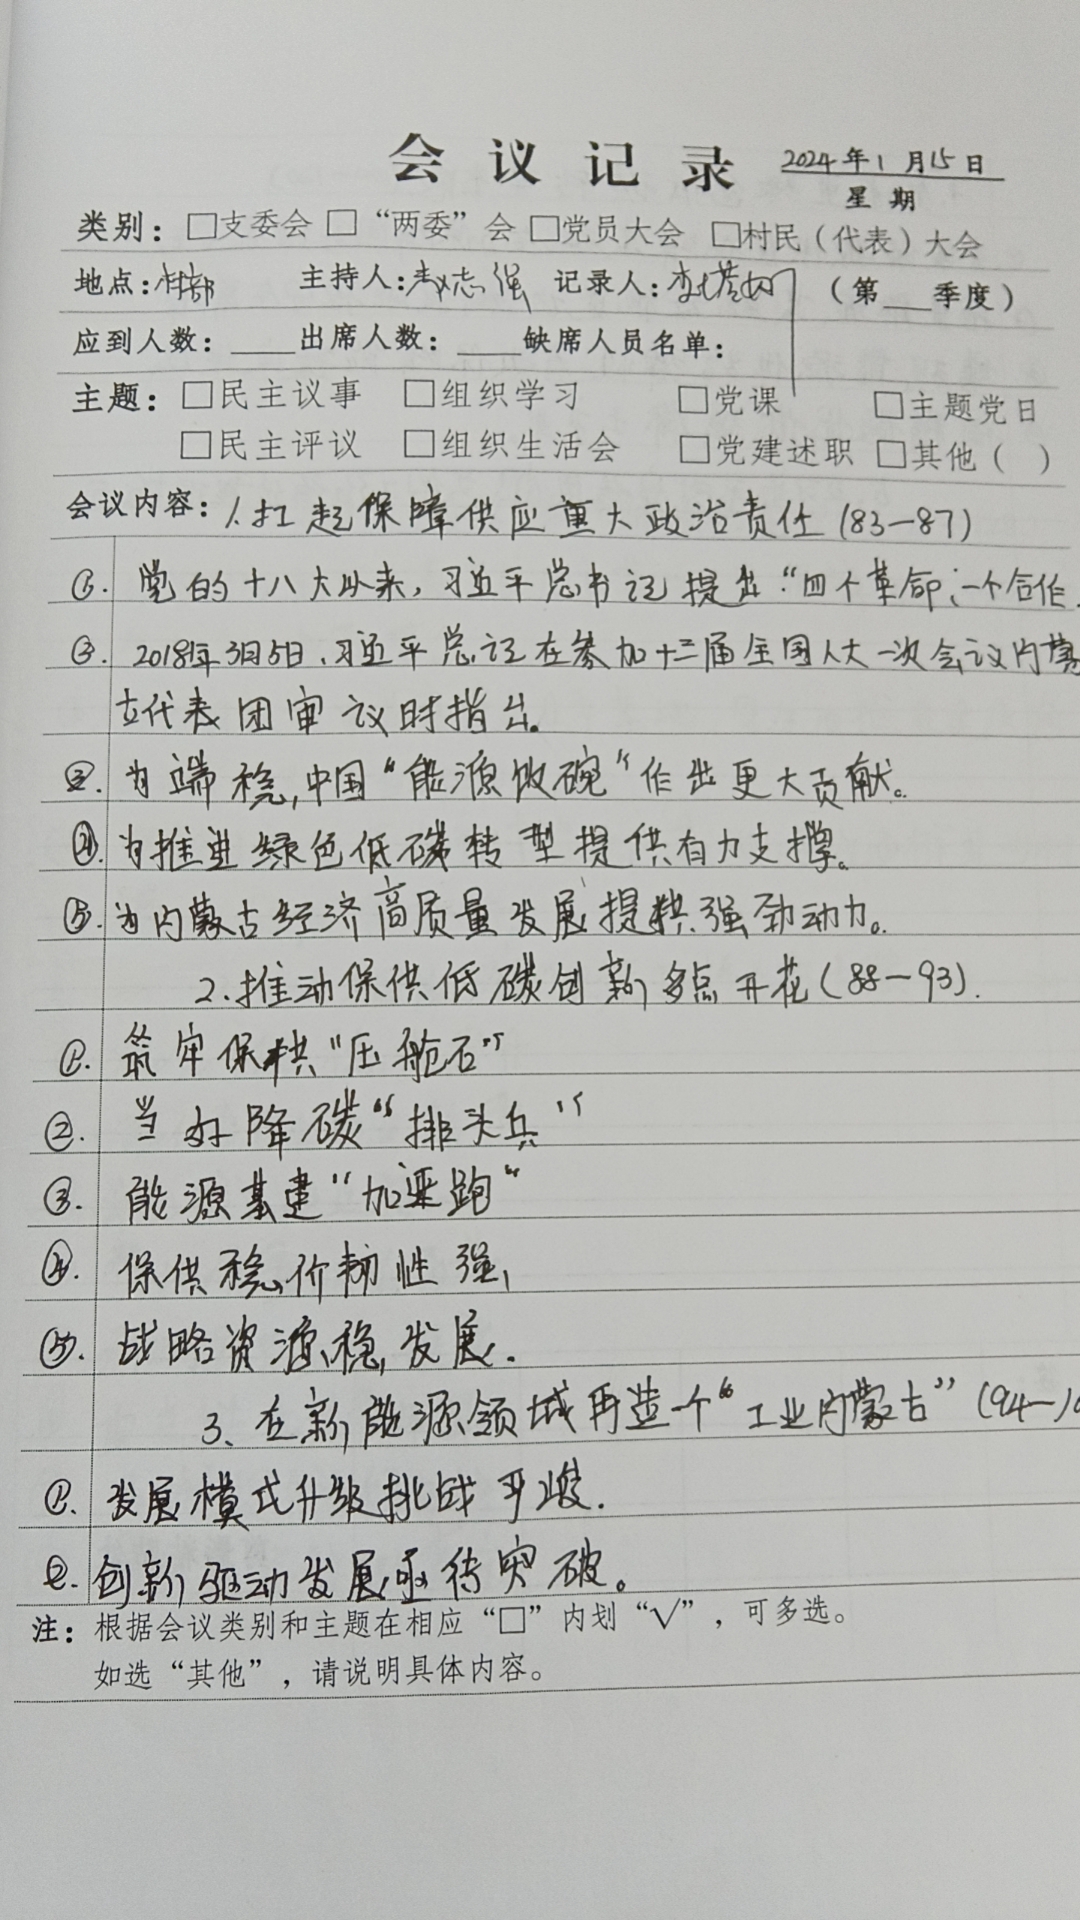 会议记录 2024年1月15日
星期
类别：□支委会 □“两委”会 □党员大会 □村民（代表）大会
地点：村部 主持人：赵志强 记录人：李 （第 季度）
应到人数： 出席人数： 缺席人员名单：
主题：□民主议事 □组织学习 □党课 □主题党日
□民主评议 □组织生活会 □党建述职 □其他（ ）
会议内容：1.扛起保障供应重大政治责任(83—87)
①.党的十八大以来，习近平总书记提出“四个革命、一个合作
②.2018年3月5日，习近平总记在参加十三届全国人大一次会议内蒙
古代表团审议时指出。
③.为端稳，中国“能源饭碗”作出更大贡献。
④.为推进绿色低碳转型提供有力支撑。
⑤.为内蒙古经济高质量发展提供强劲动力。
2.推动保供低碳创新多点开花(88—93).
①.筑牢保供“压舱石”
②.当好降碳“排头兵”
③.能源基建“加速跑“
④.保供稳价韧性强，
⑤.战略资源稳发展.
3、在新能源领域再造一个“工业内蒙古”(94—10
①.发展模式升级挑战严峻.
②.创新驱动发展亟待突破。
注：根据会议类别和主题在相应“□”内划“√”，可多选。
如选“其他”，请说明具体内容。